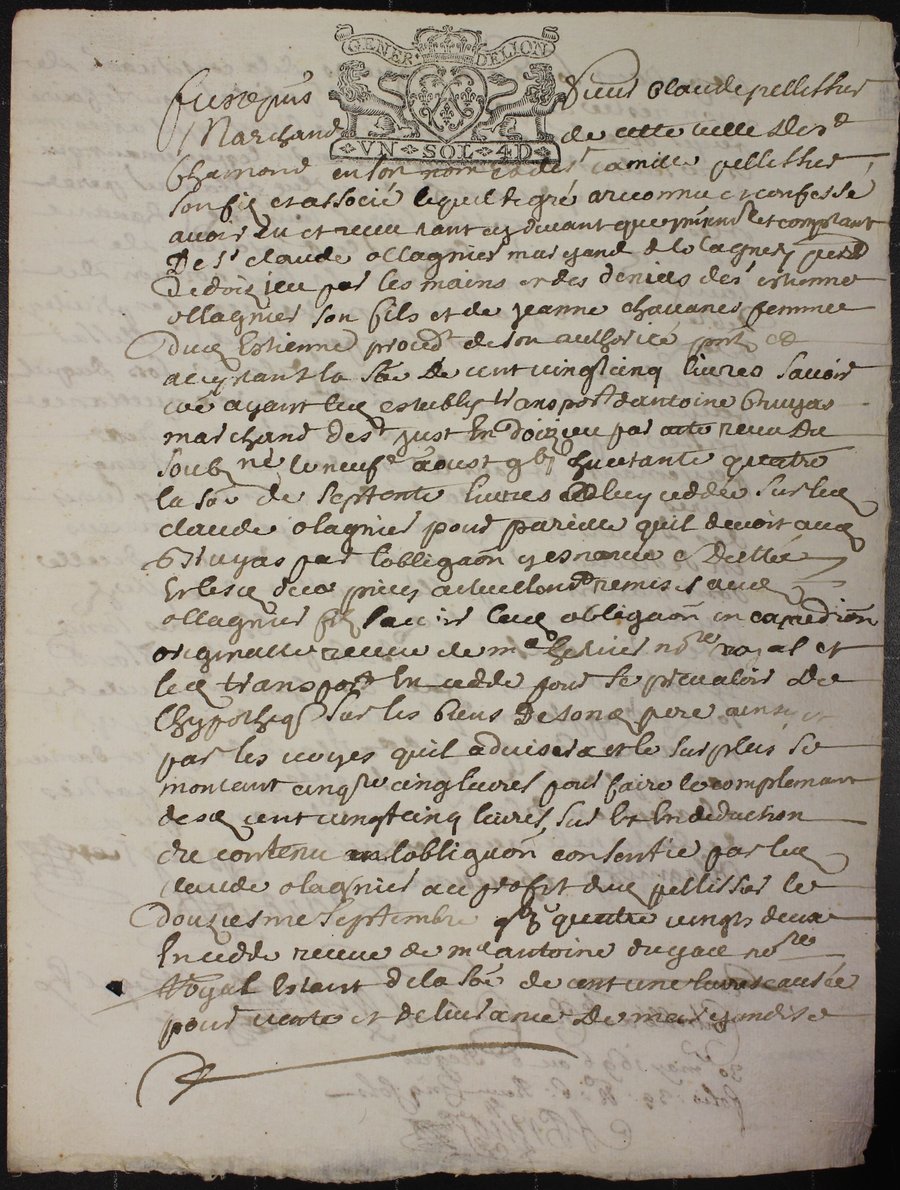 GENER DELION
VN SOL 4D
Sieur Claude pellissier
Marchand de cette ville de St
Chamond en son nom et de sr Camille pellissier
son filz et associé lequel de gré a reconnu et confessé
avoir eu et receu tant cy devant que et comptant
De sr claude ollagnier marchand de
De doizieu par les mains et des deniers de sr estienne
ollagnier son fils et de jeanne chavanes femme
duq Estienne proced de son authorité
acceptant la soe De cent vingt cinq livres Savoir
ayant leq estably transport d'antoine bruyas
marchand de st just En doizieu par acte receu du
soubz né le neuf aoust quatre
la soe de septente livres luy ceddée sur leq
claude olagnier pour pareille quil devoit auq
Bruyas par l'obligaon y enoncée
Et lesq deux pieces actuellemt remis auq
ollagnier filz Savoir lad obligaon en expedion
originalle receue de me nore royal et
led transport En cedde pour se prevaloir De
l'hypotheq sur les biens De sond pere ainsy et
par les voyes quil advisera et le surplus se
montant cinqte cinq livres pour faire le complemant
desd cent vingt cinq livres, sur Et En deduction
du contenu en l'obligaon consentie par led
claude olagnier au profit duq pellissier le
Douziesme Septembre quatre vingtz deux
En cedde receue de me antoine dugaz nore
Royal Estant de la soe de cent une livres causée
pour vente et delivrance De marchandise